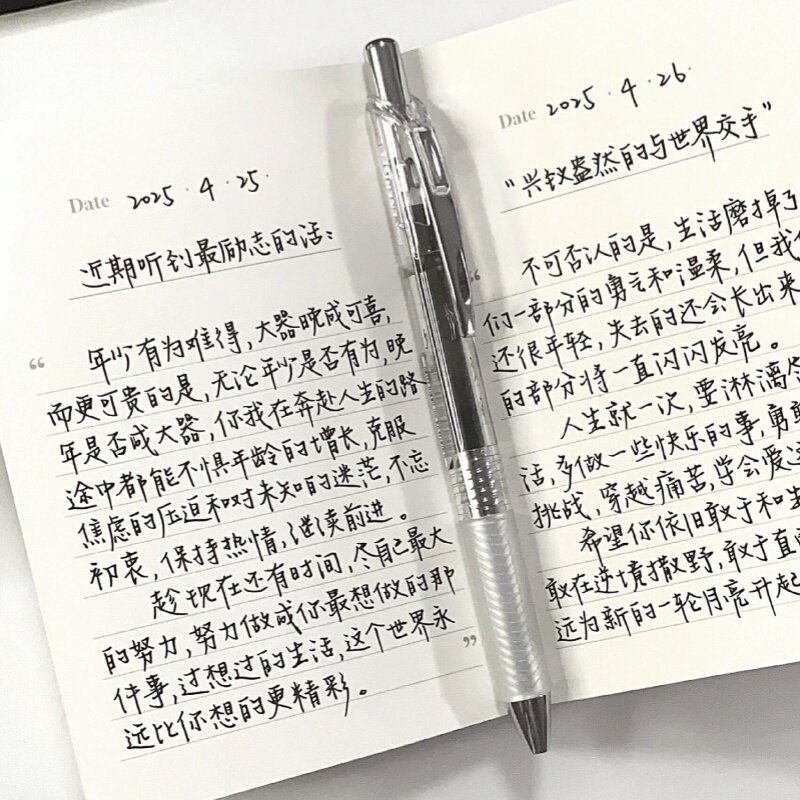 Date 2025.4.25.
近期听到最励志的话:
“ 年少有为难得,大器晚成可喜,
而更可贵的是,无论年少是否有为,晚
年是否成大器,你我在奔赴人生的路
途中都能不惧年龄的增长,克服
焦虑的压迫和对未知的迷茫,不忘
初衷,保持热情,继续前进。
趁现在还有时间,尽自己最大
的努力,努力做成你最想做的那
件事,过想过的生活,这个世界永
远比你想的更精彩。 ”
Date 2025.4.26.
“兴致盎然的与世界交手”
“ 不可否认的是,生活磨掉了
们一部分的勇气和温柔,但我
还很年轻,失去的还会长出来
的部分将一直闪闪发亮。
人生就一次,要淋漓
活,多做一些快乐的事,勇敢
挑战,穿越痛苦,学会爱
希望你依旧敢于和生
敢在逆境撒野,敢于直
远为新的一轮月亮升起